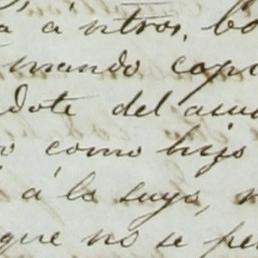 á ntros. bo
mando cap
dote del
como hijo
á la suya,
que no se pe